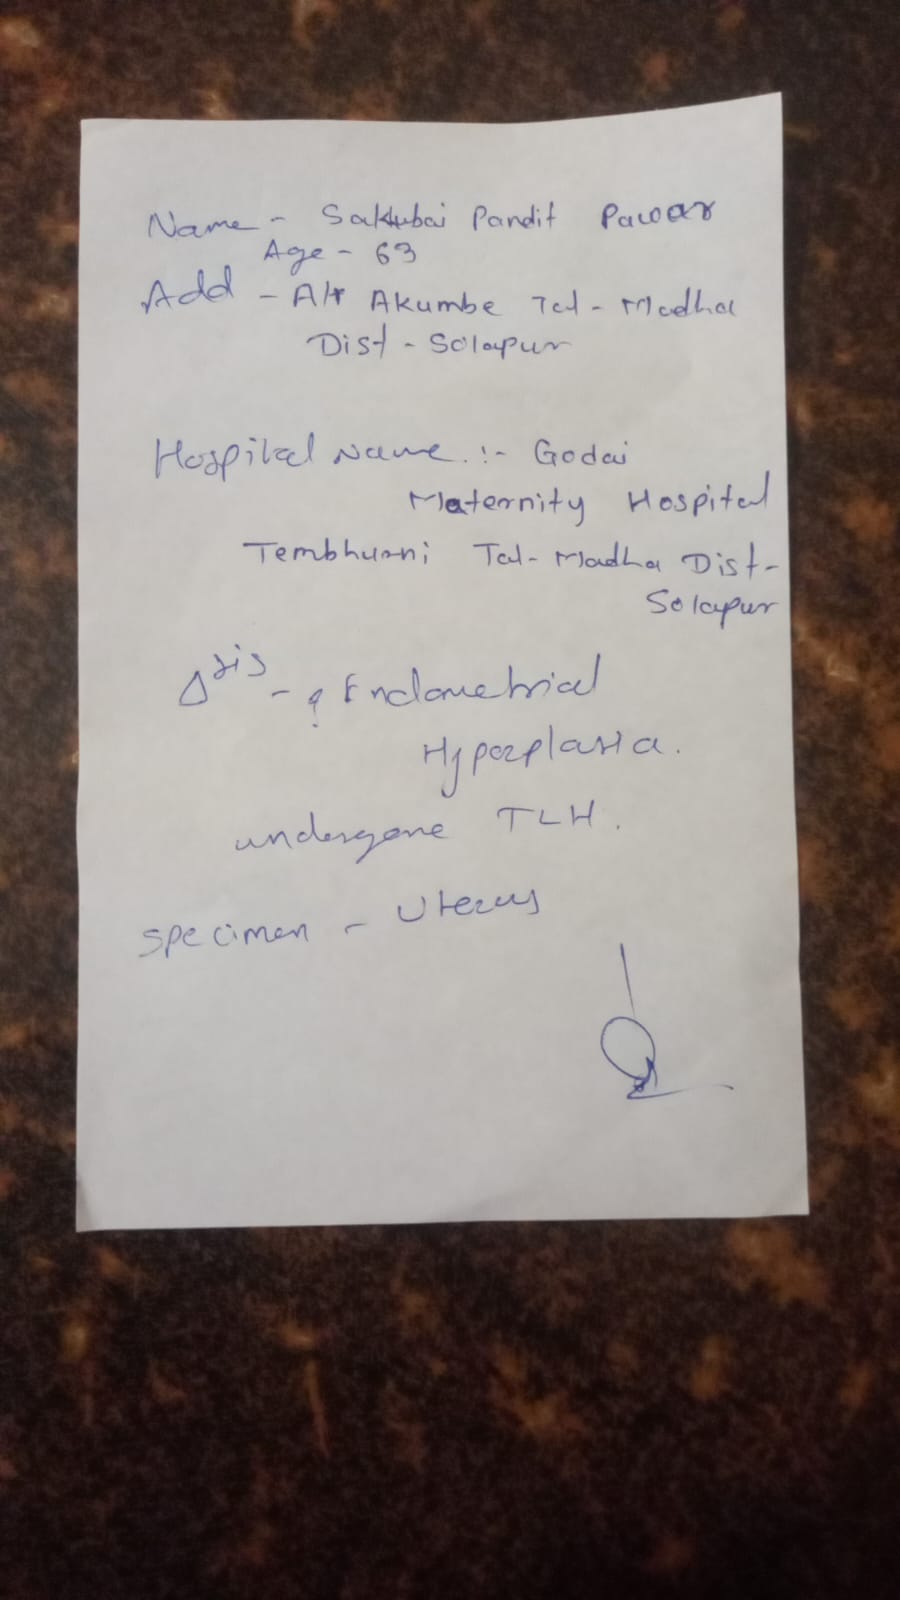 Name - Sakubai Pandit Pawar
Age - 63
Add - A/t Akumbe Tal - Madha
Dist - Solapur
Hospital Name :- Godai
Maternity Hospital
Tembhurni Tal- Madha Dist-
Solapur
Δsis - ? Endometrial
Hyperplasia.
undergone TLH.
specimen - Uterus